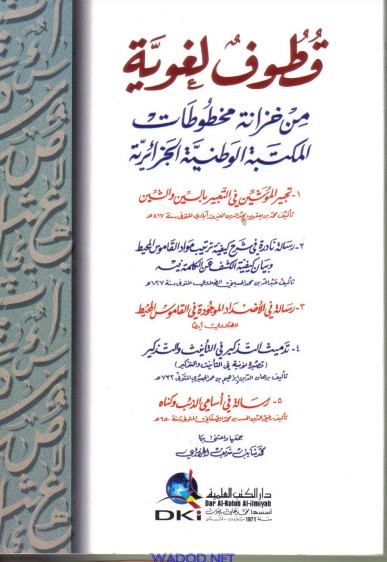 قُطُوفٌ لغويَّة
مِنْ خزانة مخطوطات
المكتبة الوطنيَّة الجزائريَّة
١- تحبير الموشِّين في التعبير بالسين والشين
تأليف محمد بن يعقوب بن محمد الفيروزآبادي المتوفى سنة ٨١٧هـ
٢- رسالة نادرة في شرح كيفية ترتيب مواد القاموس المحيط
وبيان كيفية الكشف عن الكلمة فيه
تأليف عبد الله بن محمد الحسيني الطبلاوي المتوفى سنة ١٠٢٧هـ
٣- رسالة في الأضداد الموجودة في القاموس المحيط
للطبلاوي أيضاً
٤- تدميث التذكير في التأنيث والتذكير
تأليف برهان الدين إبراهيم بن عمر الجعبري المتوفى ٧٣٢هـ
٥- رسالة في أسامي الذئب وكناه
تأليف رضي الدين الحسن بن محمد الصغاني المتوفى سنة ٦٥٠هـ
جمعها واعتنى بها
دار الكتب العلمية
Dar Al-Kotob Al-ilmiyah
DKi
WADOD.NET